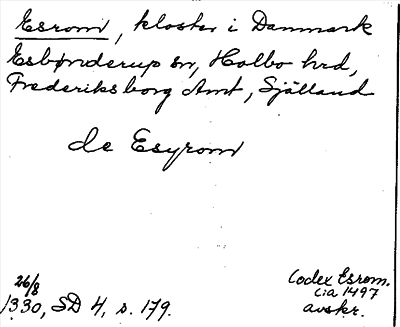 Esrom, kloster i Danmark
Esbønderup sn, Holbo hrd,
Frederiksborg Amt, Själland
de Esyrom
26/8
1330, SD 4, s. 179.
Codex Esrom.
cia 1497
avskr.